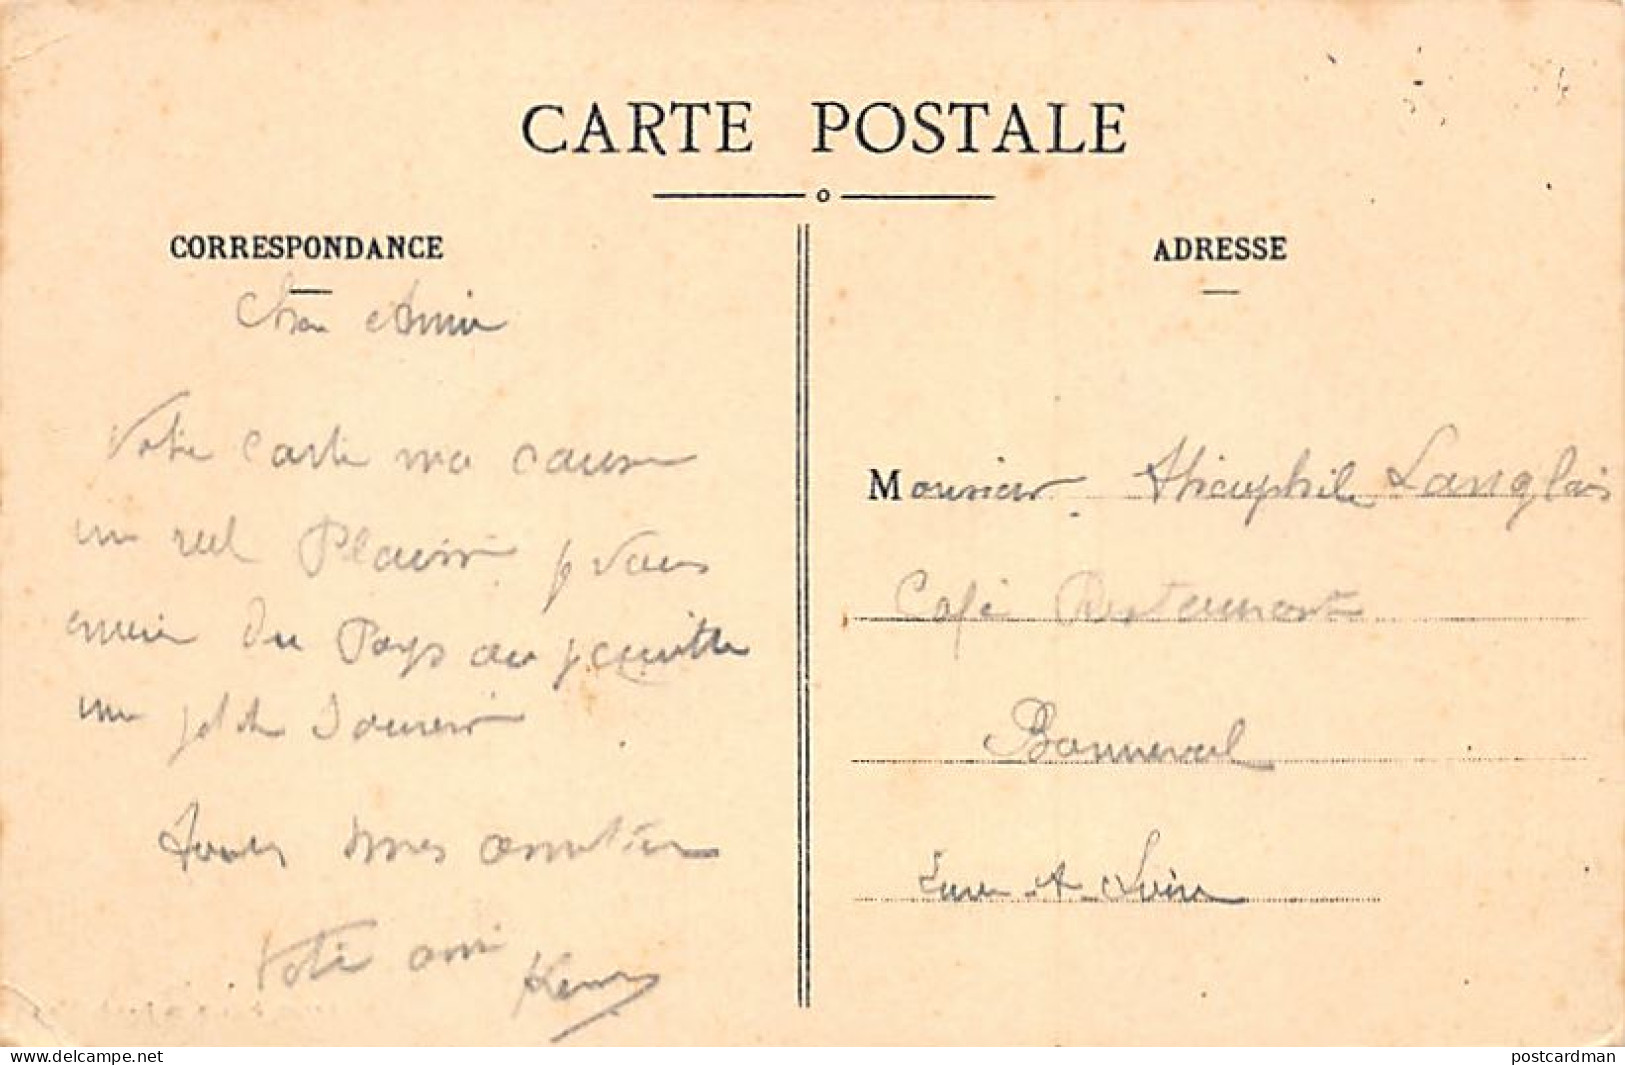 CARTE POSTALE
CORRESPONDANCE
Cher Amie
Votre carte ma cause
un reel Plaisir je vous
envoie du Pays au
un jolie Souvenir
mes amitiés
Votre ami Henry
ADRESSE
Monsieur Théophile Langlais
Café Restaurant
Bonneval
Eure-A-Loire
www.delcampe.net
postcardman